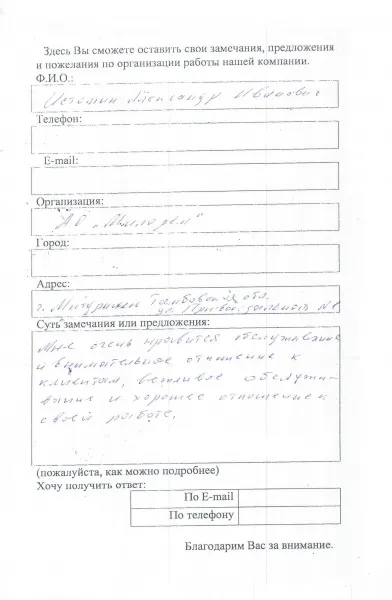 Здесь Вы сможете оставить свои замечания, предложения
и пожелания по организации работы нашей компании.
Ф.И.О.:
Истомин Александр Иванович
Телефон:
E-mail:
Организация:
АО
Город:
Адрес:
г. Мичуринск Тамбовская обл.
ул.
Суть замечания или предложения:
Мне очень нравится обслуживание
и внимательное отношение к
клиентам, вежливое обслужи-
вание и хорошее отношение к
своей работе.
(пожалуйста, как можно подробнее)
Хочу получить ответ:
По E-mail
По телефону
Благодарим Вас за внимание.